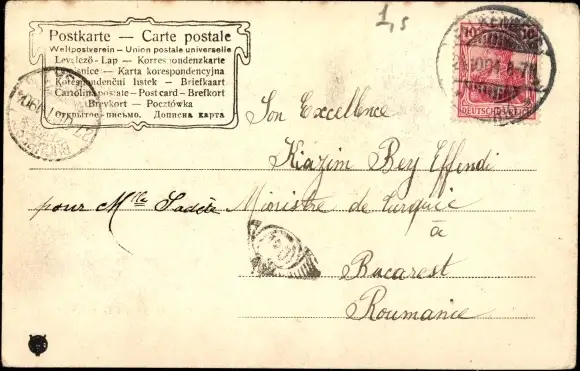 1,5
Postkarte — Carte postale
Weltpostverein — Union postale universelle
Levelező-Lap — Korrespondenzkarte
Karta korespondencyjna
Korespondenční lístek — Briefkaart
Cartolina postale — Post card — Brefkort
Brevkort — Pocztówka
Открытое письмо. Дописна карта
10 10
DEUTSCHES REICH
Son Excellence
Kiazim Bey Effendi
pour Mlle Sadéte Ministre de Turquie
à
Bucarest
Roumanie